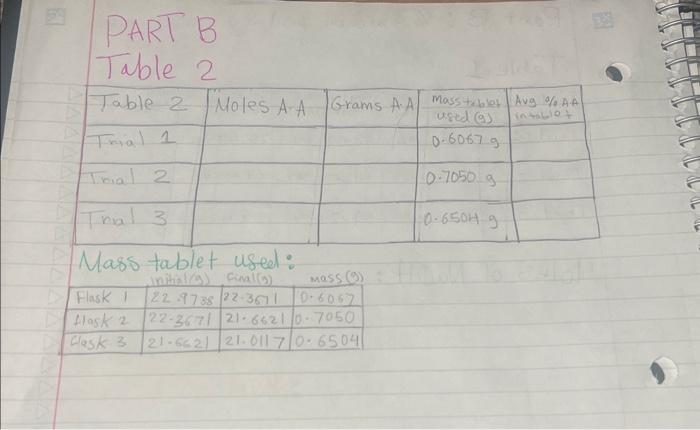 PART B
Table 2
Table 2 Moles A-A Grams A-A Mass tablet used (g) Avg % A-A in tablet
Trial 1 0.6067 g
Trial 2 0.7050 g
Trial 3 0.6504 g
Mass tablet used:
initial(g) final(g) mass (g)
Flask 1 22.9738 22.3671 0.6067
flask 2 22.3671 21.6621 0.7050
flask 3 21.6621 21.0117 0.6504